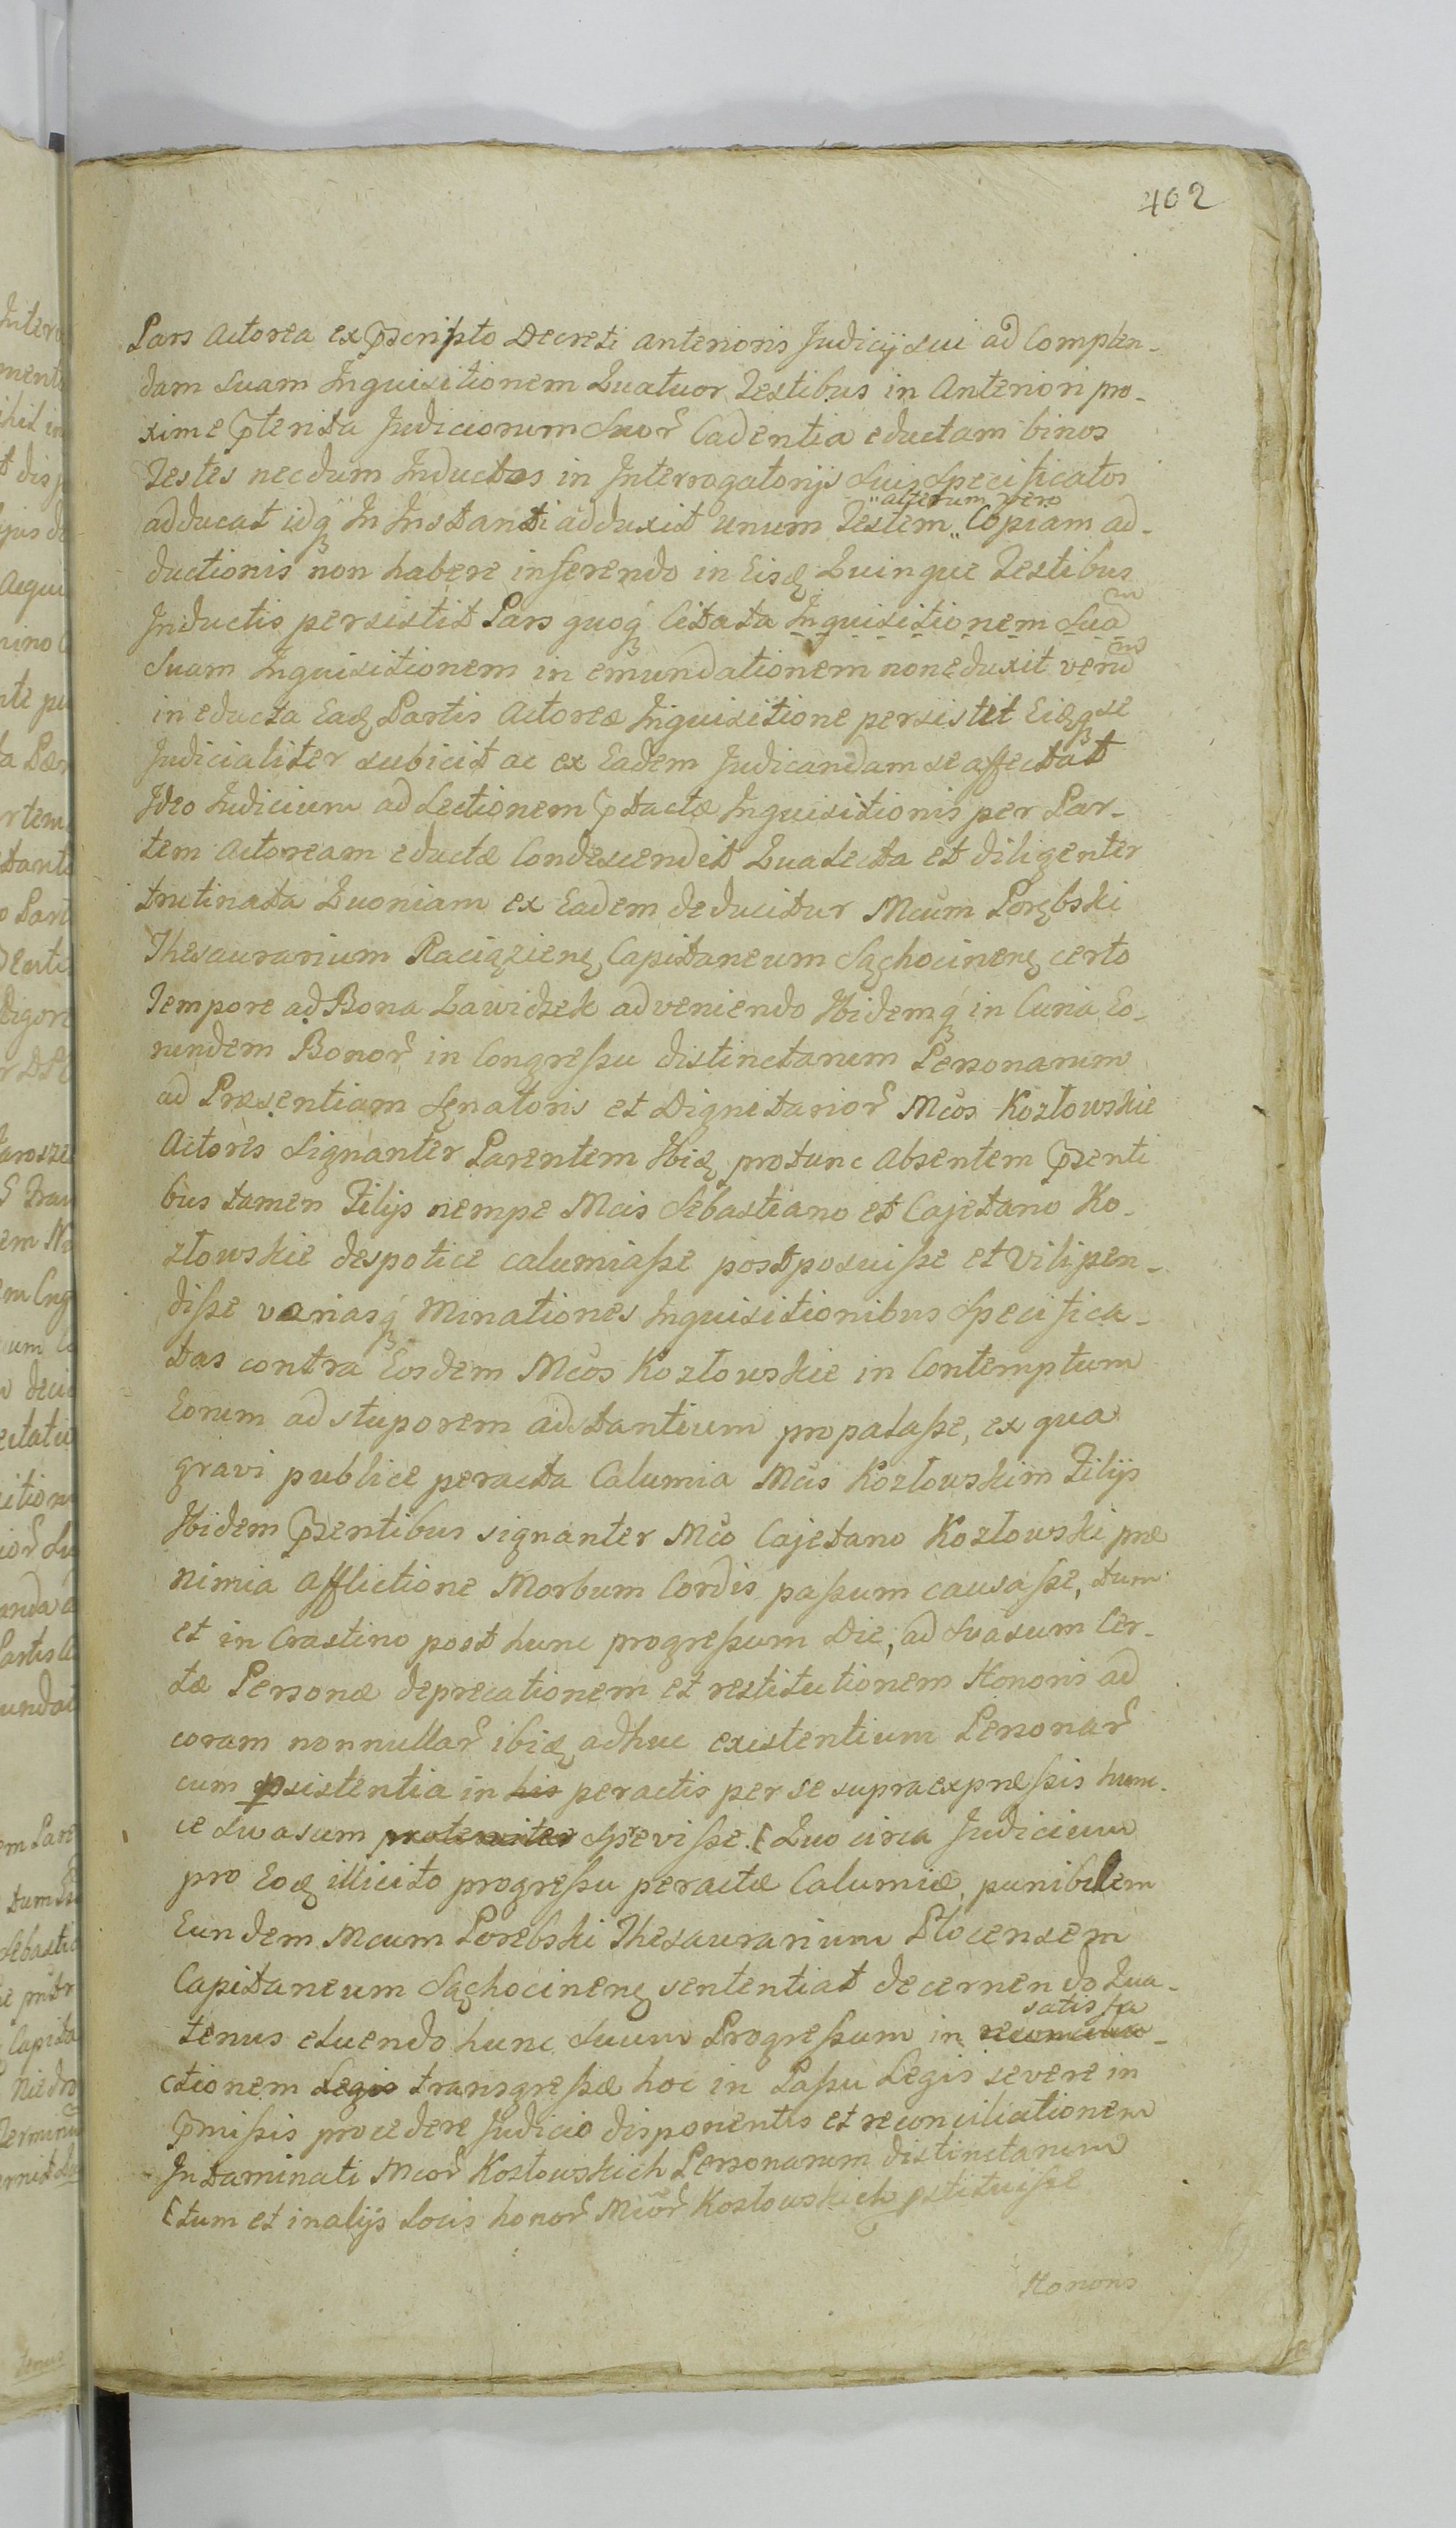 402
Pars Actorea ex Pscripto Decreti anterioris Judicij sui ad Complen-
dam Suam Inquisitionem Quatuor Testibus in Anteriori pro-
xime Pterita Judiciorum Suor Cadentia eductam binos
Testes necdum Inductos in Interrogatorijs Suis Specificatos
adducat idq In Instanti adduxit unum Testem „ Copiam ad-
„ alterum vero
ductionis non habere inferendo in Eisd Quinque Testibus
Inductis persistit Pars quoq Citata Inquisitionem Suam
Suam Inquisitionem in emundationem non eduxit verum
in educta Ead Partis Actoreæ Inquisitione persistit Eidq se
Judicialiter subicit ac ex Eadem Judicandam se affectat
Ideo Judicium ad Lectionem Ptactæ Inquisitionis per Par-
tem Actoream eductæ Condescendit Qua lecta et diligenter
trutinata Quoniam ex Eadem deducitur Mcum Porębski
Thesaurarium Raciązien Capitaneum Sąchocinen certo
Tempore ad Bona Zawidzek adveniendo Ibidemq in Curia Eo-
rundem Bonor in Congressu distinctarum Personarum
ad Præsentiam Senatoris et Dignitarior Mcos Kozłowskie
Actores Signanter Parentem Ibid protunc Absentem Psenti
bus tamen Filijs nempe Mcis Sebastiano et Cajetano Ko-
złowskie despotice calumiasse postposuisse et Vilipen-
disse variasq Minationes Inquisitionibus Specifica-
tas contra Eosdem Mcos Kozłowskie in Contemptum
Eorum ad stuporem adstantium propalasse, ex qua
gravi publice peracta Calumia Mcis Kozłowskim Filijs
Ibidem Psentibus signanter Mco Cajetano Kozłowski præ
nimia Afflictione Morbum Cordis passum causasse, tum
et in Crastino post hunc progressum Die, ad Suasum Cer-
tæ Personæ deprecationem et restitutionem Honoris ad
coram nonnullar ibid adhuc existentium Personar
cum psistentia in his peractis per se supra expressis hunc-
ce Suasum proterviter Sprevisse. Quo circa Judicium
pro Eod illicito progressu peractæ Calumiæ, punibilem
Eundem Mcum Porębski Thesaurarium Plocensem
Capitaneum Sąchocinen sententiat decernendo Qua-
tenus eluendo hunc Suum Progressum in
satisfa
ctionem Legis transgressæ hoc in Passu Legis severe in
Pmissis procedere Judicio disponentis et reconciliationem
Intaminati Mcor Kozłowskich Personarum distinctarum
tum et in alijs Locis honor Mcor Kozłowskich
Honoris